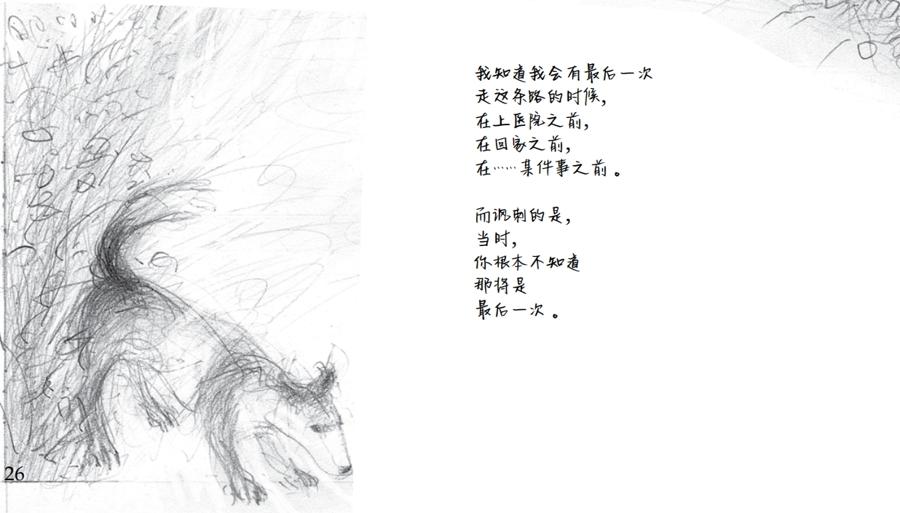 我知道我会有最后一次
走这条路的时候，
在上医院之前，
在回家之前，
在……某件事之前。
而讽刺的是，
当时，
你根本不知道
那将是
最后一次。
26